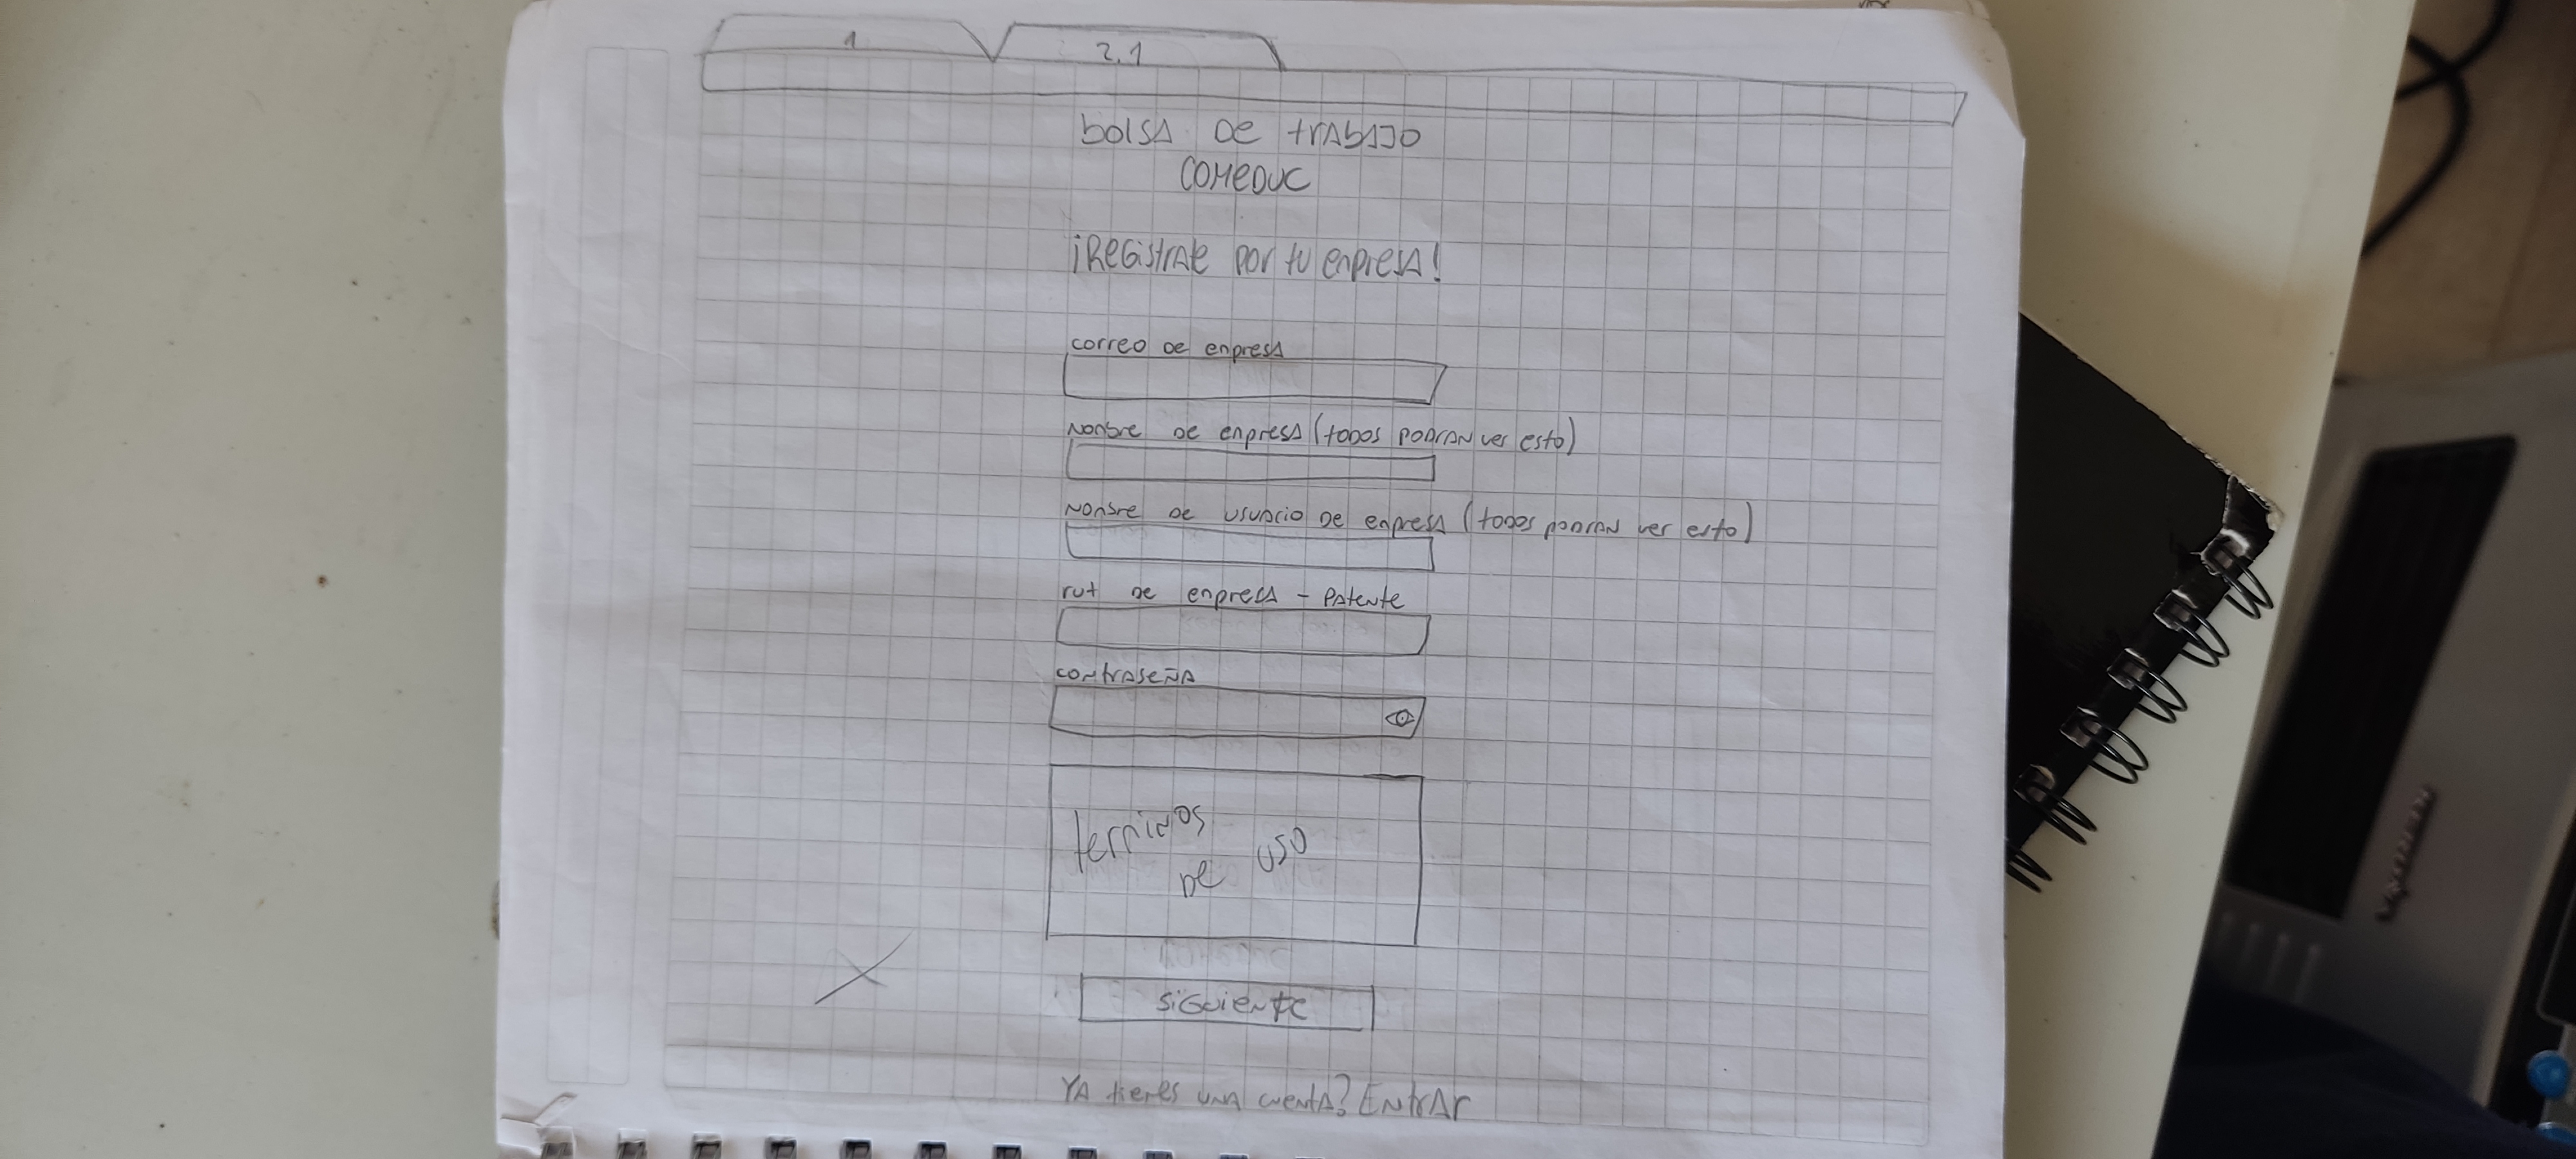 1
2.1
bolsa de trabajo
comeduc
¡Registrate por tu empresa!
correo de empresa
nombre de empresa (todos podran ver esto)
nombre de usuario de empresa (todos podran ver esto)
rut de empresa - patente
contraseña
terminos
de uso
siguiente
Ya tienes una cuenta? Entrar